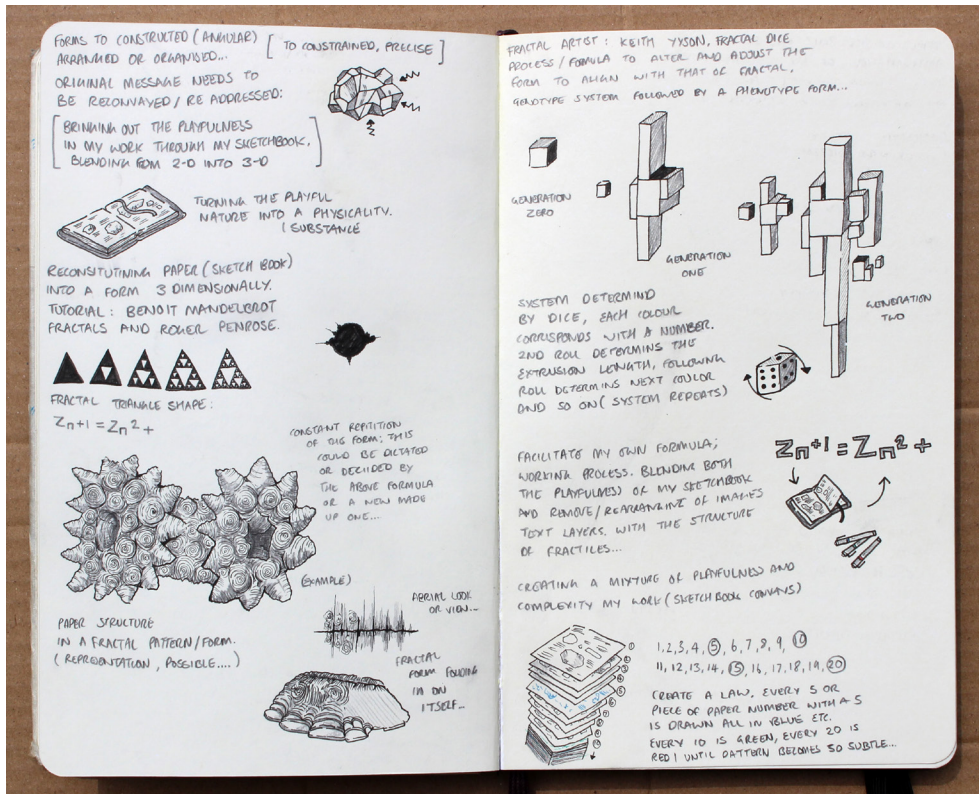 FORMS TO CONSTRUCTED (ANGULAR)
ARRANGED OR ORGANISED...
[TO CONSTRAINED, PRECISE]
ORIGINAL MESSAGE NEEDS TO
BE RECONVAYED / RE ADDRESSED:
[BRINGING OUT THE PLAYFULNESS
IN MY WORK THROUGH MY SKETCHBOOK,
BLENDING FROM 2-D INTO 3-D]
TURNING THE PLAYFUL
NATURE INTO A PHYSICALITY.
/ SUBSTANCE
RECONSITUTINING PAPER (SKETCH BOOK)
INTO A FORM 3 DIMENSIONALLY.
TUTORIAL: BENOIT MANDELBROT
FRACTALS AND ROGER PENROSE.
FRACTAL TRIANGLE SHAPE:
Zn+1 = Zn² +
CONSTANT REPITITION
OF BIG FORM; THIS
COULD BE DICTATED
OR DECIDED BY
THE ABOVE FORMULA
OR A NEW MADE
UP ONE...
(EXAMPLE)
PAPER STRUCTURE
IN A FRACTAL PATTERN/FORM.
(REPRESENTATION, POSSIBLE....)
AERIAL LOOK
OR VIEW...
FRACTAL
FORM FOLDING
IN ON
ITSELF...
FRACTAL ARTIST: KEITH TYSON, FRACTAL DICE
PROCESS/FORMULA TO ALTER AND ADJUST THE
FORM TO ALIGN WITH THAT OF FRACTAL.
GENOTYPE SYSTEM FOLLOWED BY A PHENOTYPE FORM...
GENERATION
ZERO
GENERATION
ONE
GENERATION
TWO
SYSTEM DETERMIND
BY DICE, EACH COLOUR
CORRISPONDS WITH A NUMBER.
2ND ROLL DETERMINS THE
EXTRUSION LENGTH, FOLLOWING
ROLL DETERMINS NEXT COULOR
AND SO ON (SYSTEM REPEATS)
FACILITATE MY OWN FORMULA;
WORKING PROCESS. BLENDING BOTH
THE PLAYFULNESS OF MY SKETCHBOOK
AND REMOVE/REARRANGING OF IMAGES
TEXT LAYERS. WITH THE STRUCTURE
OF FRACTILES...
Zn+1 = Zn² +
CREATING A MIXTURE OF PLAYFULNESS AND
COMPLEXITY MY WORK (SKETCHBOOK CONVANS)
1, 2, 3, 4, 5, 6, 7, 8, 9, 10
11, 12, 13, 14, 15, 16, 17, 18, 19, 20
CREATE A LAW, EVERY 5 OR
PIECE OF PAPER NUMBER WITH A 5
IS DRAWN ALL IN BLUE ETC.
EVERY 10 IS GREEN, EVERY 20 IS
RED / UNTIL PATTERN BECOMES SO SUBTLE...